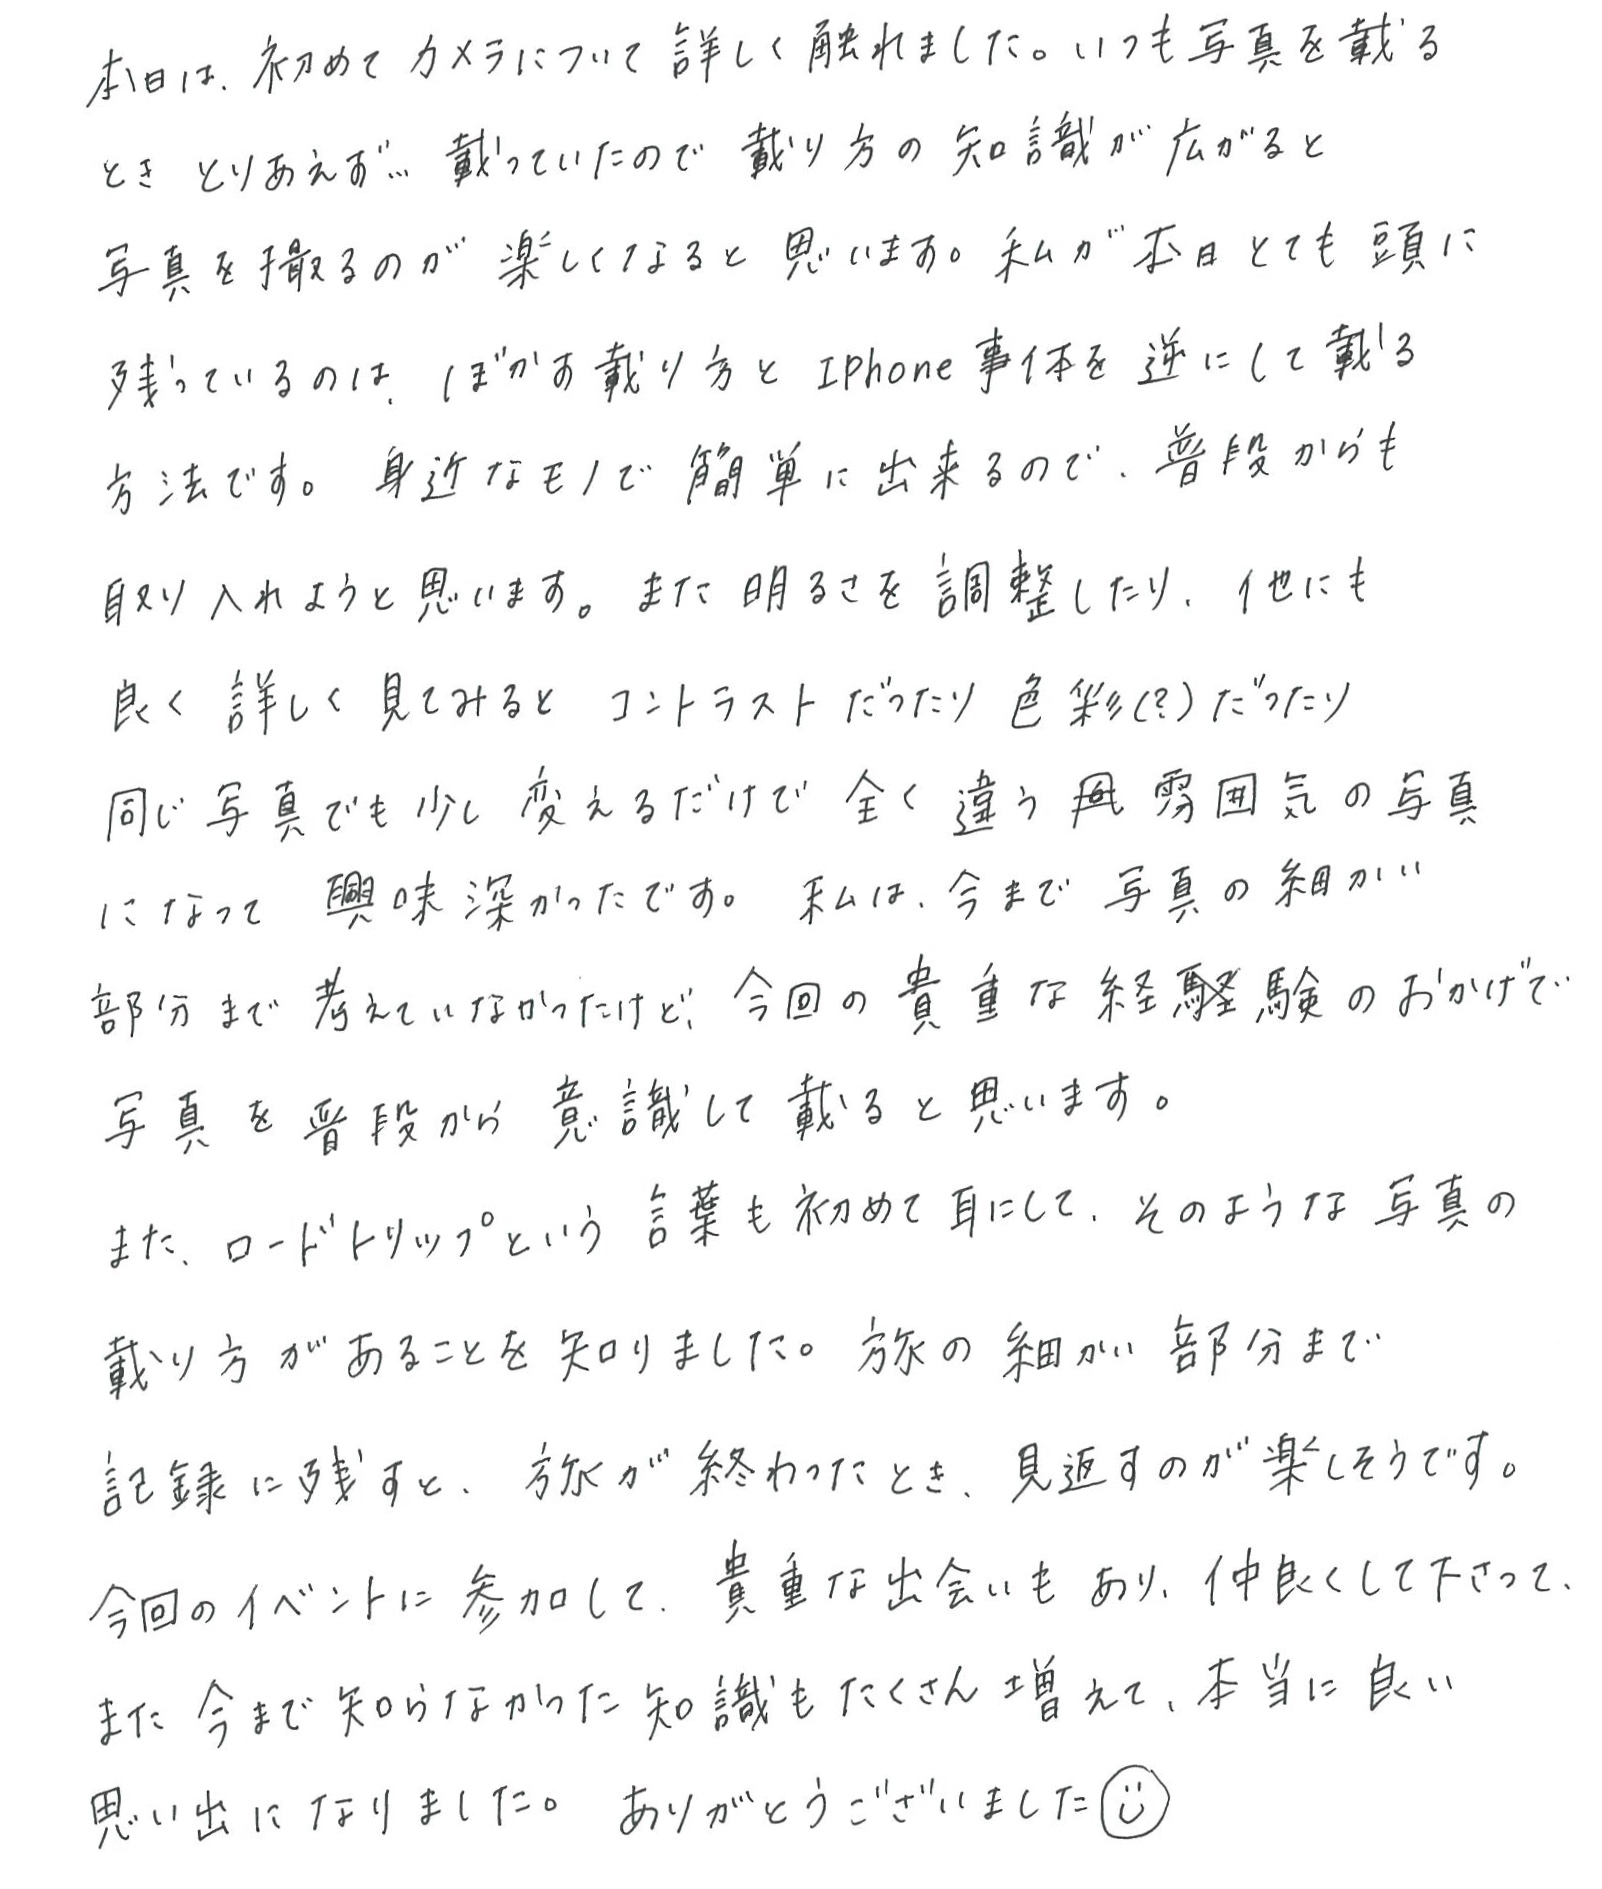 本日は、初めてカメラについて詳しく触れました。いつも写真を載る
とき とりあえず… 載っていたので 載り方の 知識が 広がると
写真を撮るのが 楽しくなると 思います。私が本日とても 頭に
残っているのは、ぼかす載り方と IPhone事体を 逆にして載る
方法です。 身近なモノで 簡単に出来るので、普段からも
取り入れようと思います。また 明るさを 調整したり、他にも
良く 詳しく 見てみると コントラストだったり 色彩(?)だったり
同じ 写真でも少し 変えるだけで 全く違う 雰囲気の写真
になって 興味深かったです。 私は、今まで 写真の細かい
部分まで 考えていなかったけど、今回の 貴重な経験のおかげで
写真を普段から 意識して 載ると思います。
また、ロードトリップという 言葉も初めて耳にして、そのような写真の
載り方があることを知りました。旅の細かい 部分まで
記録に残すと、旅が 終わったとき、見返すのが楽しそうです。
今回のイベントに 参加して、貴重な出会いもあり、仲良くして下さって、
また 今まで知らなかった知識もたくさん増えて、本当に良い
思い出になりました。 ありがとうございました